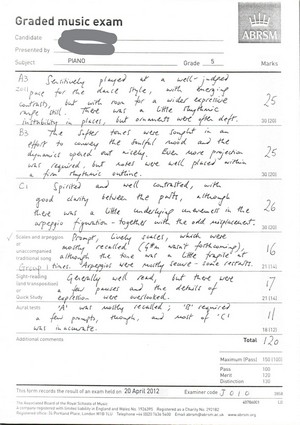 Graded music exam
ABRSM
Candidate
Presented by
Subject PIANO Grade 5 Marks
A3 Sensitively played at a well-judged
pace for the dance style, with emerging
contrasts, but with room for a wider expressive
range still. There was a little rhythmic
instability in places, but ornaments were often deft.
25
30 (20)
B3 The softer tones were sought in an
effort to convey the soulful mood and the
dynamics opened out nicely. Even more projection
was required, but notes were well placed within
a firm rhythmic outline.
25
30 (20)
C1 Spirited and well contrasted, with
good clarity between the parts, although
there was a little underlying unevenness in the
arpeggio figuration - together with the odd misplacement.
26
30 (20)
Scales and arpeggios
or un-
accompanied
traditional song
Prompt, lively scales, which were
mostly recalled (G#m wasn't forthcoming),
although the tone was a little fragile at
Group 1 times. Arpeggios were mostly secure - some restarts.
16
21 (14)
Sight-reading
(and transposition)
or
Quick Study
Generally well read, but there were
a few pauses and the details of
expression were overlooked.
17
21 (14)
Aural tests
'A' was mostly recalled; 'B' required
a few prompts, though, and most of 'C'
was inaccurate.
11
18 (12)
Additional comments
Total 120
Maximum (Pass) 150 (100)
Pass 100
Merit 120
Distinction 130
This form records the result of an exam held on 20 April 2012 Examiner code J010
The Associated Board of the Royal Schools of Music